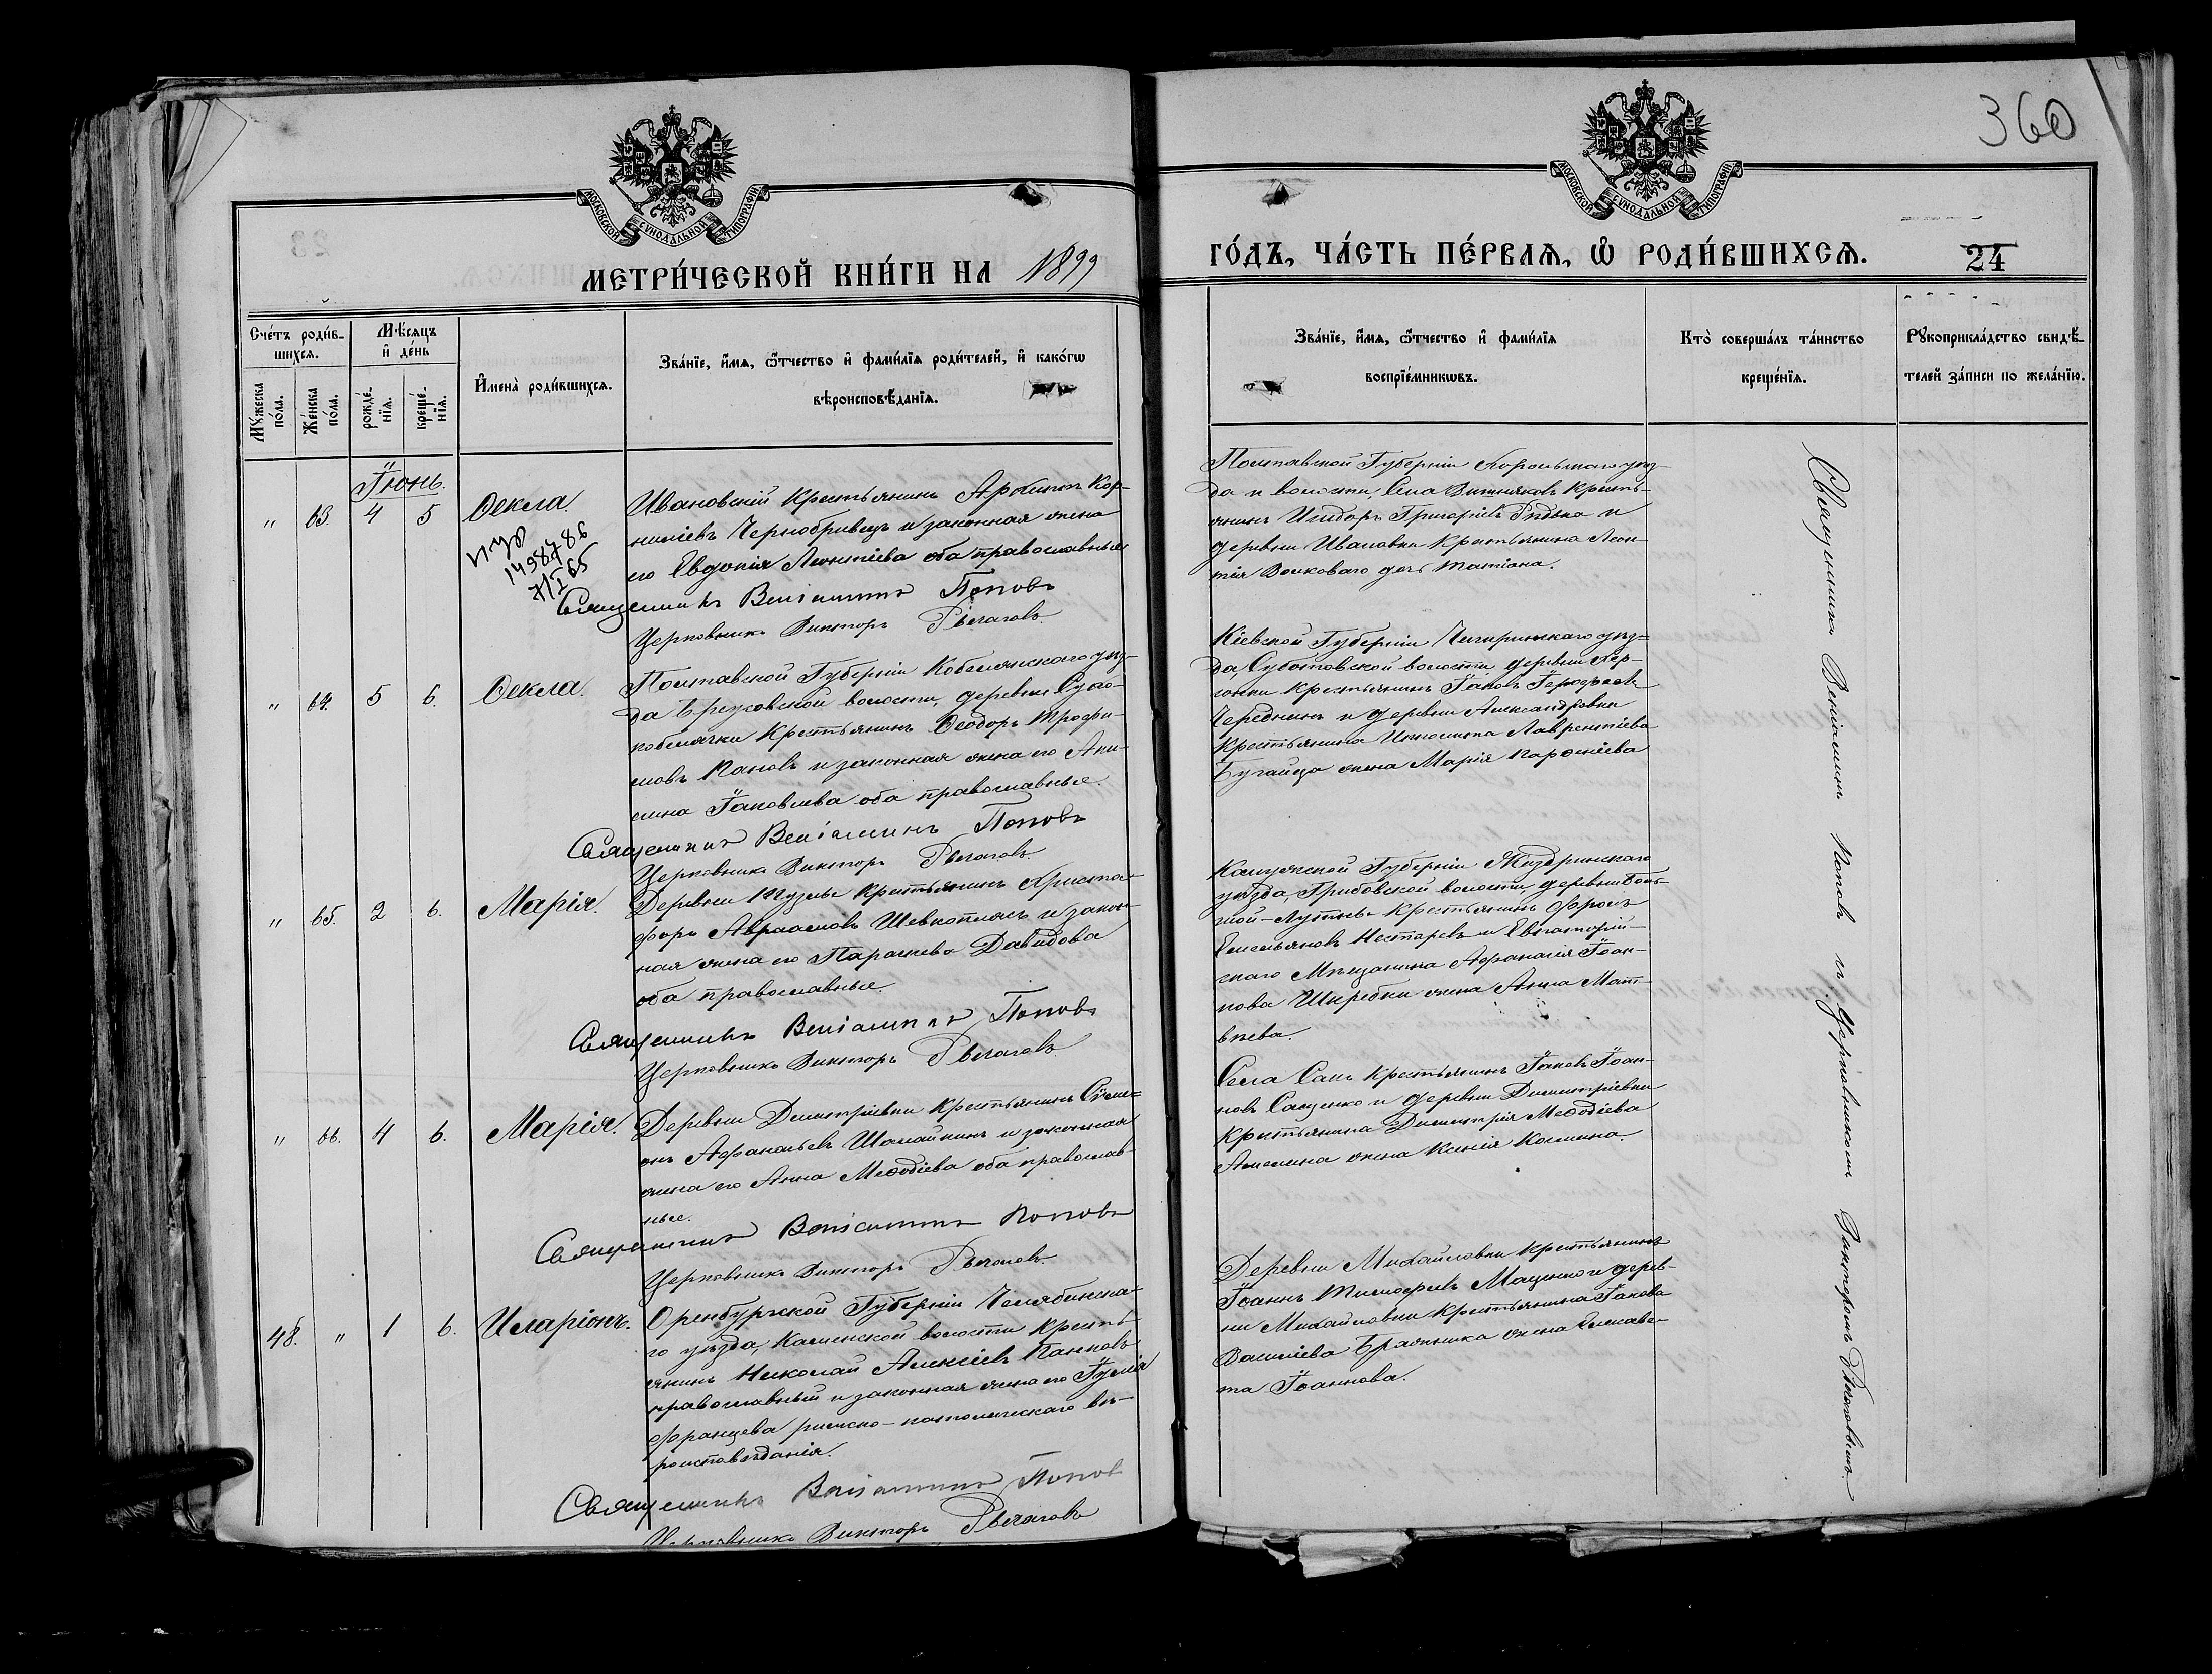 360
МОСКОВСКОЙ СѴНОДАЛЬНОЙ ТИПОГРАФІИ
МОСКОВСКОЙ СѴНОДАЛЬНОЙ ТИПОГРАФІИ
МЕТРИ́ЧЕСКОЙ КНИ́ГИ НА 1899
ГО́ДЪ, ЧА́СТЬ ПЕ́РВАѦ, Ѡ҆ РОДИ́ВШИХСѦ.
24
Сче́тъ роди́в-
шихсѧ.
Мꙋ́жеска
по́ла.
Же́нска
по́ла.
Мѣ́сѧцъ
и҆ де́нь
рожде́-
нїѧ.
креще́-
нїѧ.
И҆мена̀ роди́вшихсѧ.
Зва́нїе, и҆́мѧ, ѻ҆́тчество и҆ фами́лїѧ роди́телей, и҆ како́гѡ
вѣроисповѣ́данїѧ.
Зва́нїе, и҆́мѧ, ѻ҆́тчество и҆ фами́лїѧ
воспрїе́мникѡвъ.
Кто̀ соверша́лъ та́инство
креще́нїѧ.
Рꙋкоприкла́дство свидѣ́-
телей за́писи по жела́нїю.
Іюнь.
" 63. 4 5 Ѳекла.
149878б
7/I 65
Ивановскій крестьянинъ Архипъ Кор-
ниліевъ Чернобривецъ и законная жена
его Евдокія Леонтіева оба православные
Священникъ Веніаминъ Поповъ
Церковникъ Викторъ Рычаговъ.
Полтавской Губерніи Хорольскаго уѣз-
да и волости, Села Вишняковъ крестья-
янинъ Исидоръ Григоріевъ Рѣдька и
деревни Ивановки крестьянина Леон-
тія Волковаго дочь Татіана.
" 64. 5 6. Ѳекла.
Полтавской Губерніи Кобелякскаго уѣз-
да волости, деревни Сухо-
кобелячки крестьянинъ Ѳеодоръ Трофи-
мовъ Пановъ и законная жена его Аки-
лина Іаковлева оба православные.
Священникъ Веніаминъ Поповъ
Церковникъ Викторъ Рычаговъ.
Кіевской Губерніи Чигиринскаго уѣз-
да, Суботовской волости, деревни
крестьянинъ Іаковъ Іероѳеевъ
Чередникъ и деревни Александровки
крестьянина Ипполита Лаврентіева
Бугайца жена Марія
" 65. 2 6. Марія.
Деревни Тузлы крестьянинъ Христо-
форъ Авраамовъ Шевкоплясъ и закон-
ная жена его Параскева Давидова
оба православные.
Священникъ Веніаминъ Поповъ
Церковникъ Викторъ Рычаговъ.
Калужской Губерніи Жиздринскаго
уѣзда, Грибовской волости, деревни
крестьянинъ Фролъ
Емельяновъ Нестеровъ и Евпаторій-
скаго Мѣщанина Аѳанасія Іоан-
нова жена Анна Мат-
вѣева.
" 66. 4 6. Марія.
Деревни Димитріевки крестьянинъ Сѵме-
онъ Аѳанасьевъ и законная
жена его Анна Меѳодіева оба православ-
ные.
Священникъ Веніаминъ Поповъ
Церковникъ Викторъ Рычаговъ.
Села Саки крестьянинъ Іаковъ Іоан-
новъ Саценко и деревни Димитріевки
крестьянина Димитрія Меѳодіева
Амелина жена Ксенія Космина.
48. " 1 6. Иларіонъ.
Оренбургской Губерніи Челябинска-
го уѣзда, Каменской волости крестья-
янинъ Николай Алексіевъ Панковъ
православный и законная жена его Іулія
Францева римско-католическаго вѣ-
роисповѣданія.
Священникъ Веніаминъ Поповъ
Церковникъ Викторъ Рычаговъ
Деревни Михайловки крестьянинъ
Іоаннъ Тимоѳеевъ Маценко и дерев-
ни Михайловки крестьянина Іакова
Василіева Бражника жена Елисаве-
та Іоаннова.
Священникъ Веніаминъ Поповъ и Церковникомъ Викторомъ Рычаговымъ.